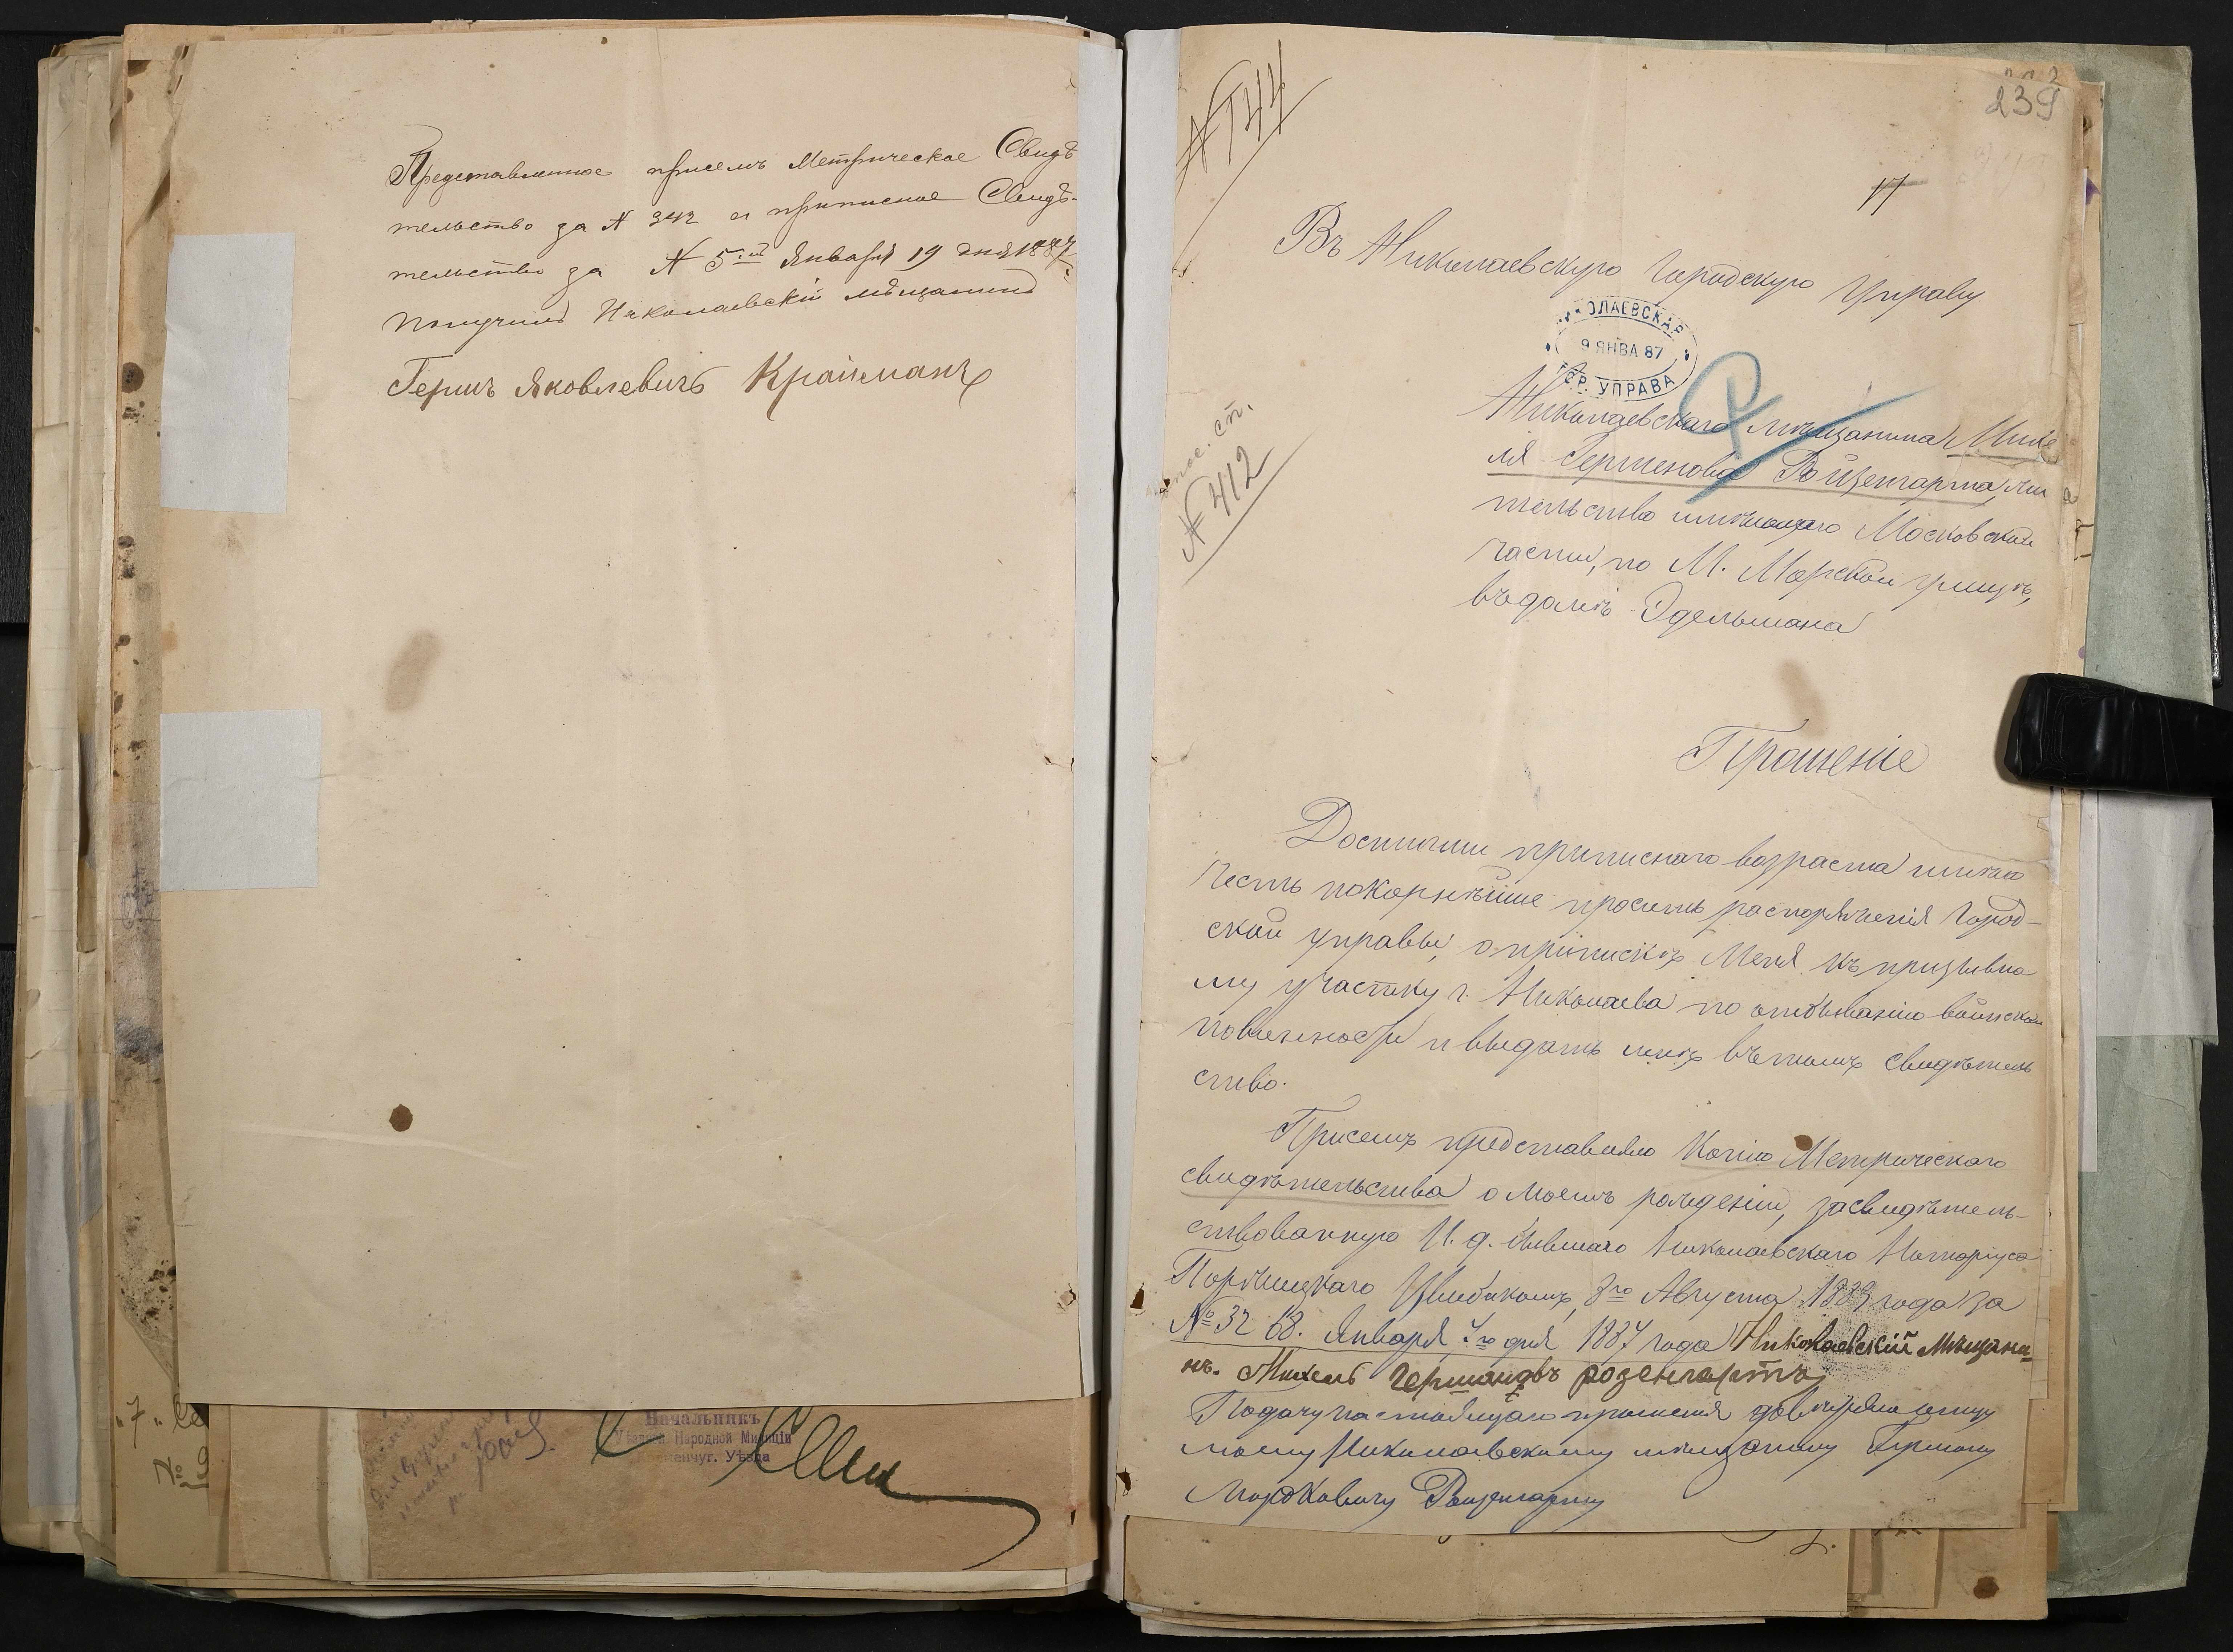 Представленное присемъ Метрическое Свидѣ
тельство за № 342 и приписное Свидѣ-
тельство за № 5ый Января 19 дня 1887 г.
получилъ Николаевскій мѣщанинъ
Гершъ Яковлевичъ Крайманъ
Начальникъ
Народной Милиціи
Уѣзда
239
№ 412
17
Въ Николаевскую Городскую Управу
НИКОЛАЕВСКАЯ
9 ЯНВА 87
ГОР. УПРАВА
Николаевскаго мѣщанина Михе
ля Гершенова Розенгарта, жи
тельство имѣющаго Московской
части, по М. Морской улицѣ,
въ домѣ Эдельмана
Прошеніе
Достигши приписнаго возраста имѣю
честь покорнѣйше просить распоряженія Город-
ской управы, о припискѣ Меня къ призывно
му участку г. Николаева по отбыванію воинской
повинности и выдать мнѣ въ томъ свидѣтель
ство.
Присемъ представляю Копію Метрическаго
свидѣтельства о моемъ рожденіи, засвидѣтель-
ствованную И. д. бывшаго Николаевскаго Нотаріуса
3го Августа 1883 года за
№ 3268. Января 7го дня 1887 года Николаевскій Мѣщани=
нъ. Михель Гершоновъ розенгартъ
Подачу настоящаго прошенія довѣряю отцу
моему Николаевскому мѣщанину Гершону
Мордковичу Розенгарту